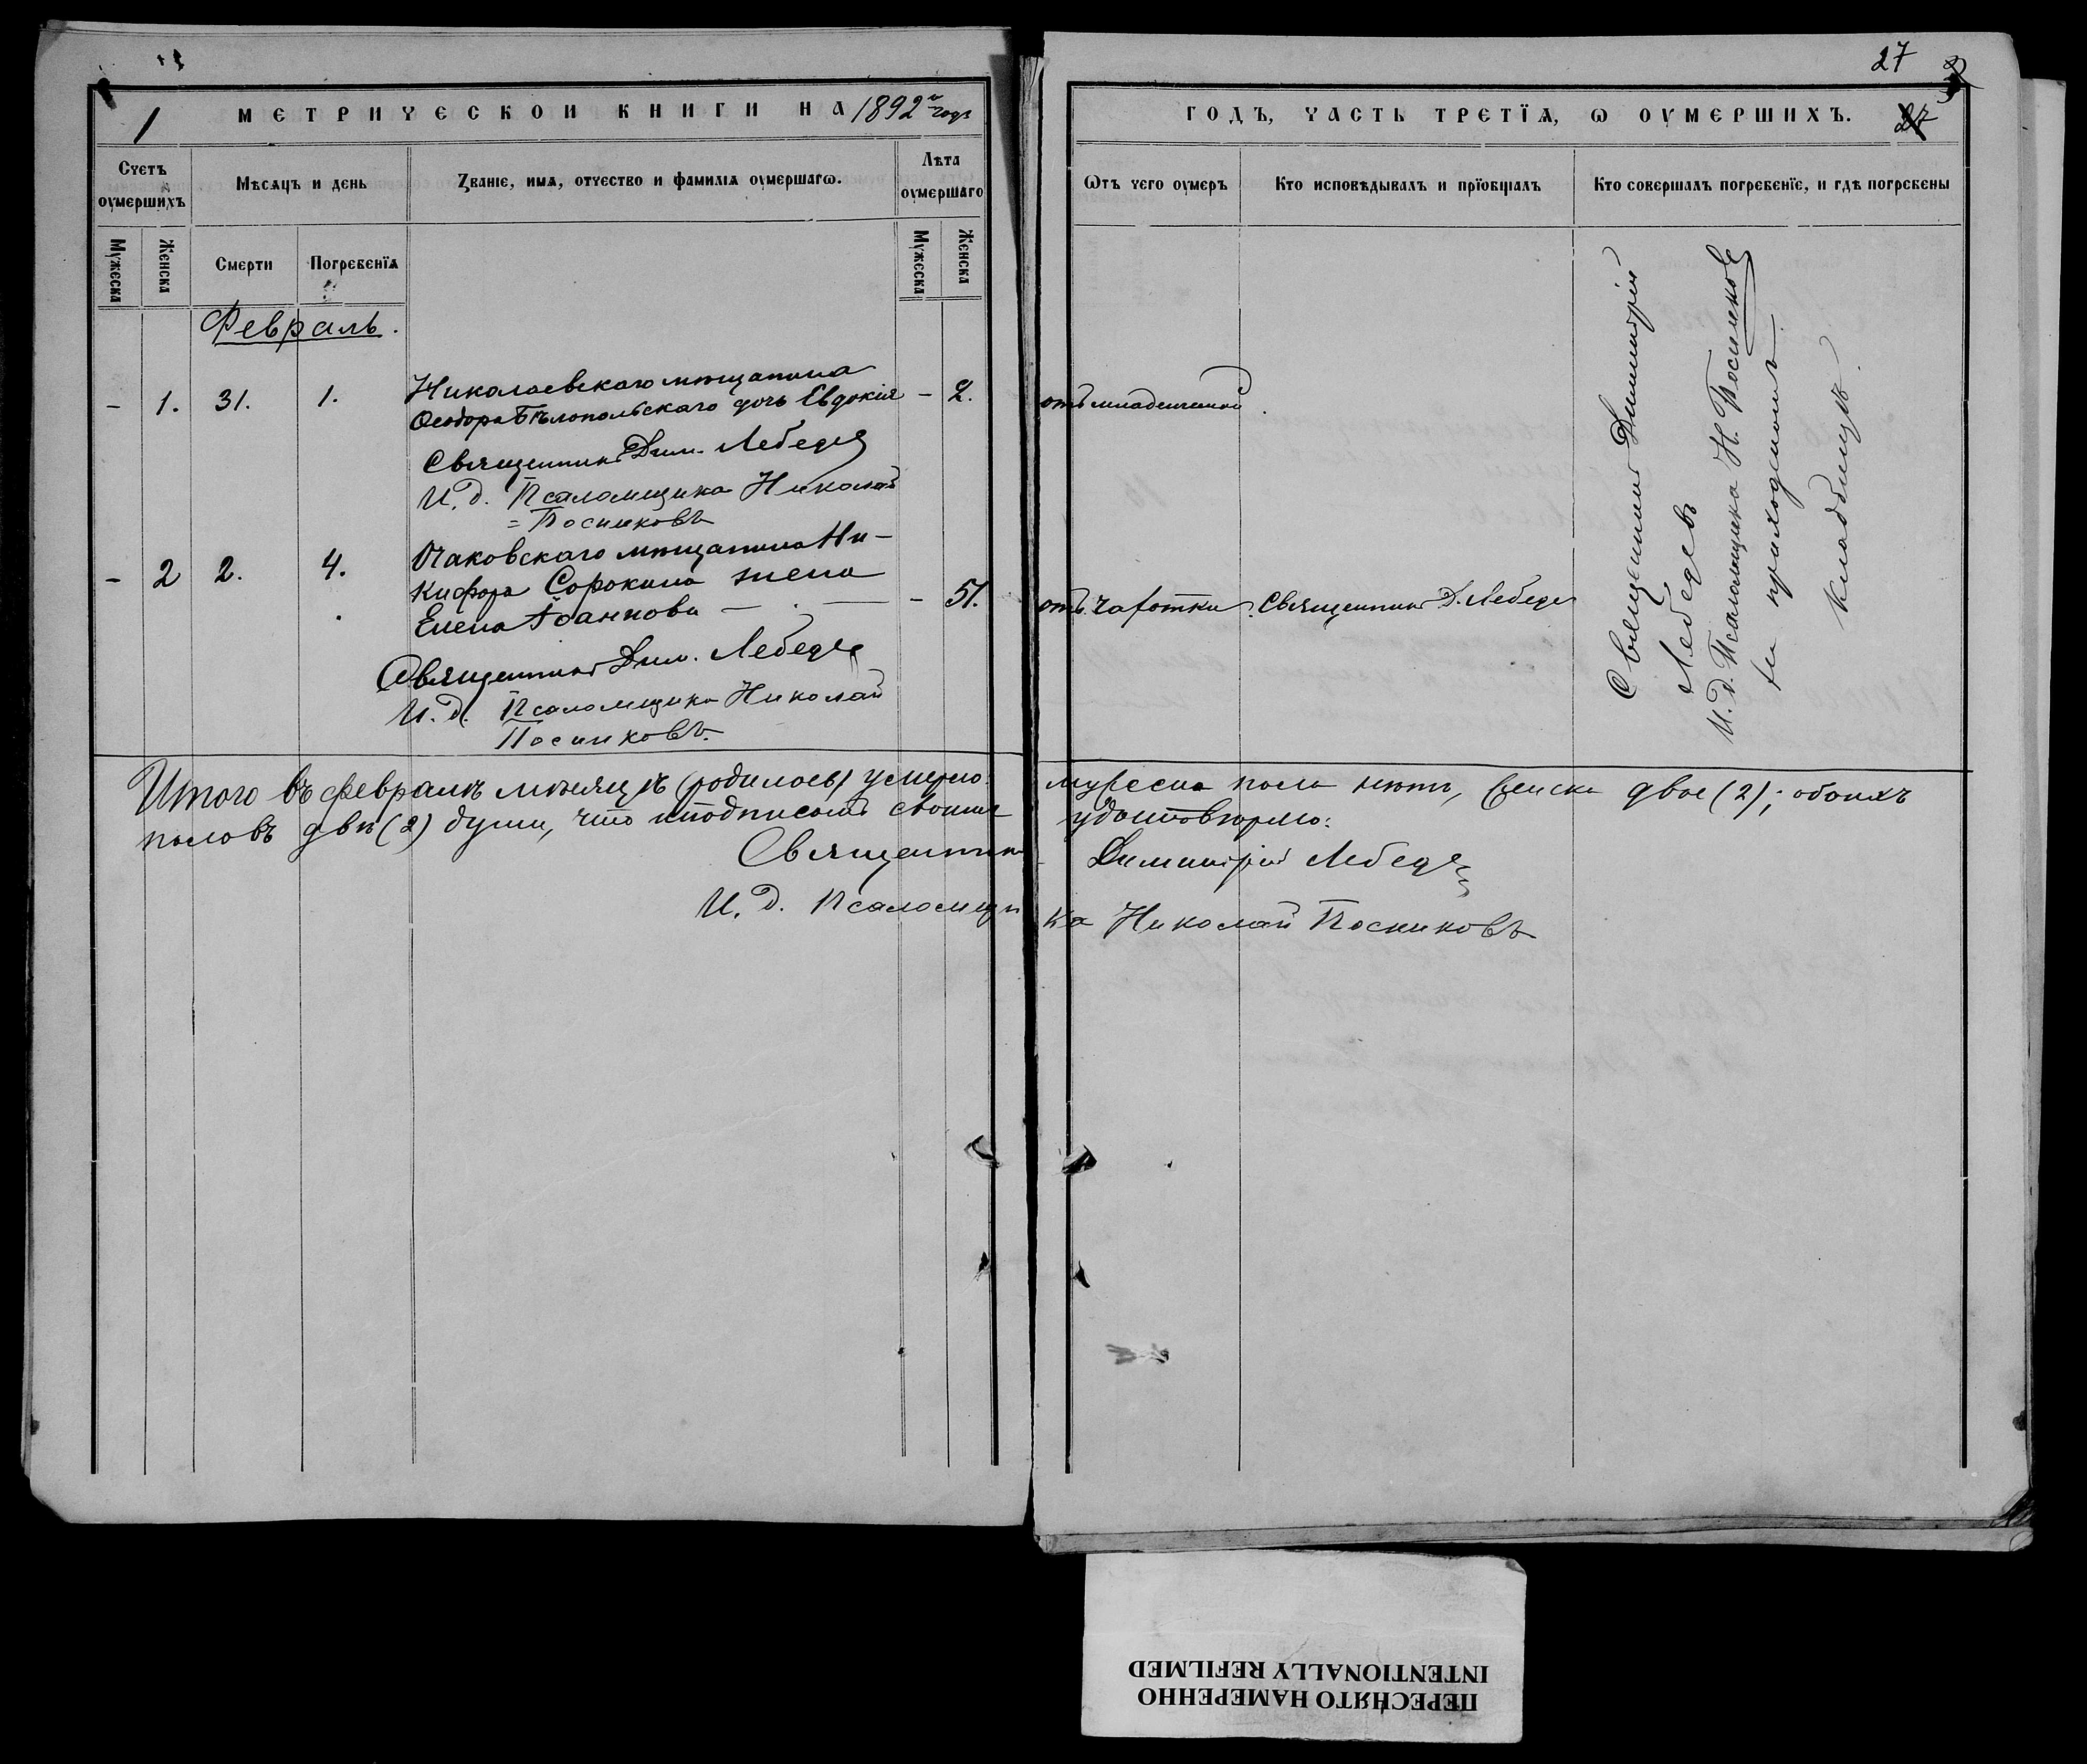 27
1 МЕТРИЧЕСКОЙ КНИГИ НА 1892й годъ
ГОДЪ, ЧАСТЬ ТРЕТЇѦ, Ѡ ОУМЕРШИХЪ. 27
Счетъ оумершихъ
Мѣсѧцъ и день
Ѕванїе, имѧ, отчество и фамилїѧ оумершагѡ.
Лѣта оумершаго
Ѡтъ чего оумеръ
Кто исповѣдывалъ и прїобщалъ
Кто совершалъ погребенїе, и гдѣ погребены
Мужеска
Женска
Смерти
Погребенїѧ
Мужеска
Женска
Февраль.
– 1. 31. 1. Николаевскаго мѣщанина
Ѳеодора Бѣлопольскаго дочь Евдокія – 2. отъ младенческой
Священникъ Дим. Лебедевъ
И. д. Псаломщика Николай
= Посниковъ
– 2 2. 4. Очаковскаго мѣщанина Ни-
кифора Сорокина жена
Елена Іоаннова – 51. отъ чахотки. Священникъ Д. Лебедевъ
Священникъ Дим. Лебедевъ
И. д. Псаломщика Николай
Посниковъ.
Священникъ Димитрій
Лебедевъ
И. д. Псаломщика Н. Посниковъ
на приходскомъ
кладбищѣ.
Итого въ февралѣ мѣсяцѣ (родилось) умерло: мужеска пола нѣтъ, женска двое (2); обоихъ
половъ двѣ (2) души, что и подписомъ своимъ удостовѣряю:
Священникъ Димитрій Лебедевъ
И. д. Псаломщика Николай Посниковъ
ПЕРЕСНЯТО НАМЕРЕННО
INTENTIONALLY REFILMED